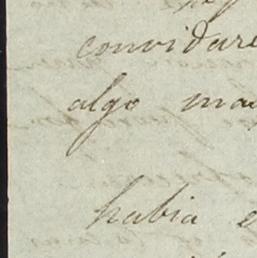 convidare
algo ma
habia e